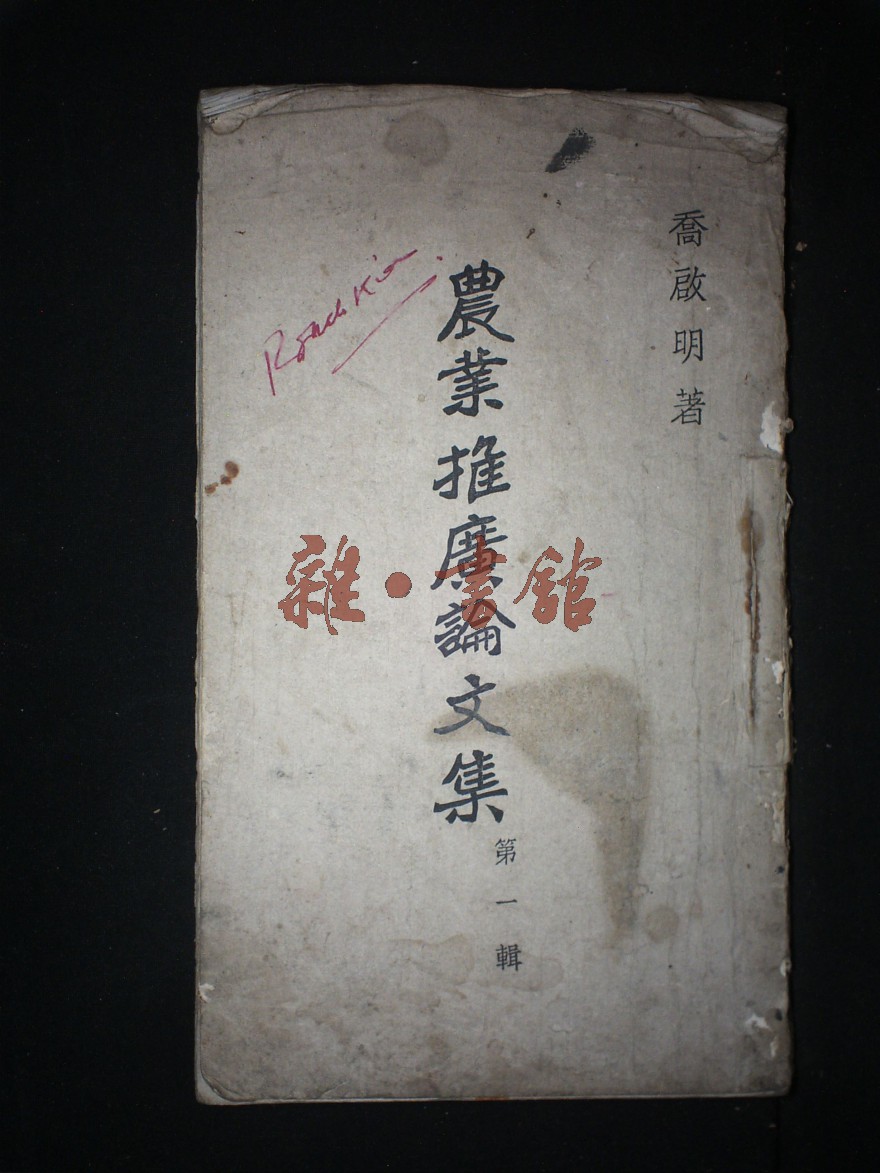 喬啟明著
農業推廣論文集
第一輯
雜·書館